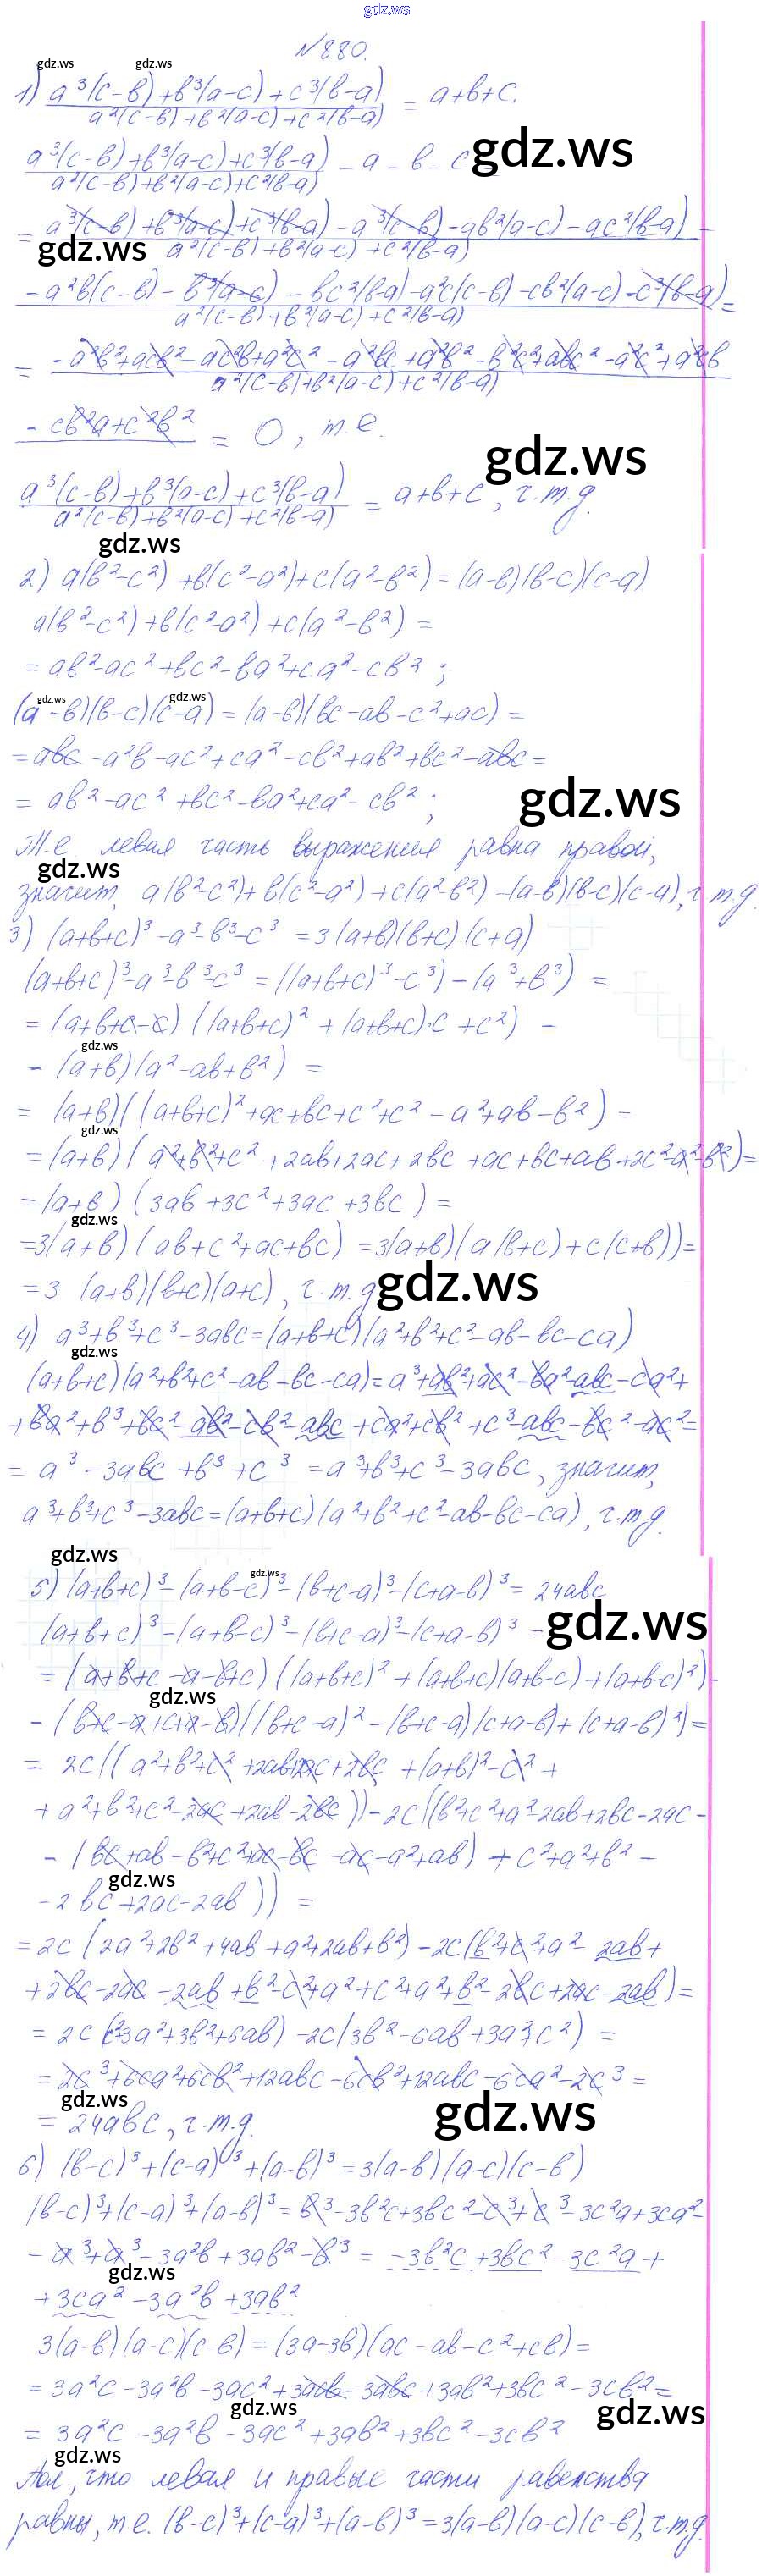 gdz.ws
№880.
gdz.ws gdz.ws
1) a³(c-в)+в³(a-c)+c³(в-a) / a²(c-в)+в²(a-c)+c²(в-a) = a+в+c.
a³(c-в)+в³(a-c)+c³(в-a) / a²(c-в)+в²(a-c)+c²(в-a) - a - в - c
gdz.ws
= a³(c-в)+в³(a-c)+c³(в-a)-a³(c-в)-aв²(a-c)-ac²(в-a) / a²(c-в)+в²(a-c)+c²(в-a) -
gdz.ws
-a²в(c-в)-в³(a-c)-вc²(в-a)-a²c(c-в)-cв²(a-c)-c³(в-a) / a²(c-в)+в²(a-c)+c²(в-a) =
= -a²в²+acв²-ac²в+a²c²-a²вc+a²в²-в²c²+aвc²-a²c²+a²cв / a²(c-в)+в²(a-c)+c²(в-a)
-cв²a+c²в² = 0, т.е.
gdz.ws
a³(c-в)+в³(a-c)+c³(в-a) / a²(c-в)+в²(a-c)+c²(в-a) = a+в+c, ч.т.д.
gdz.ws
2) a(в²-c²)+в(c²-a²)+c(a²-в²)=(a-в)(в-c)(c-a)
a(в²-c²)+в(c²-a²)+c(a²-в²)=
= aв²-ac²+вc²-вa²+ca²-cв²;
gdz.ws gdz.ws
(a-в)(в-c)(c-a)=(a-в)(вc-aв-c²+ac)=
=aвc-a²в-ac²+ca²-cв²+aв²+вc²-aвc=
= aв²-ac²+вc²-вa²+ca²-cв²;
gdz.ws
Т.е левая часть выражения равна правой,
gdz.ws
значит, a(в²-c²)+в(c²-a²)+c(a²-в²)=(a-в)(в-c)(c-a), ч.т.д.
3) (a+в+c)³-a³-в³-c³ =3(a+в)(в+c)(c+a)
(a+в+c)³-a³-в³-c³ =((a+в+c)³-c³)-(a³+в³) =
= (a+в+c-c)((a+в+c)²+(a+в+c)·c+c²) -
gdz.ws
-(a+в)(a²-aв+в²) =
= (a+в)((a+в+c)²+ac+вc+c²+c²-a²+aв-в²) =
gdz.ws
=(a+в)(a²+в²+c²+2aв+2ac+2вc+ac+вc+aв+2c²-a²-в²)=
=(a+в)(3aв+3c²+3ac+3вc)=
gdz.ws
=3(a+в)(aв+c²+ac+вc) =3(a+в)(a(в+c)+c(c+в))=
=3 (a+в)(в+c)(a+c), ч.т.д
gdz.ws
4) a³+в³+c³-3aвc=(a+в+c)(a²+в²+c²-aв-вc-ca)
gdz.ws
(a+в+c)(a²+в²+c²-aв-вc-ca)=a³+aв²+ac²-вa²-aвc-ca²+
+вa²+в³+вc²-aв²-cв²-aвc+ca²+cв²+c³-aвc-вc²-ac²=
= a³-3aвc+в³+c³ =a³+в³+c³-3aвc, значит,
a³+в³+c³-3aвc=(a+в+c)(a²+в²+c²-aв-вc-ca), ч.т.д.
gdz.ws
gdz.ws
5) (a+в+c)³-(a+в-c)³-(в+c-a)³-(c+a-в)³= 24aвc
(a+в+c)³-(a+в-c)³-(в+c-a)³-(c+a-в)³ =
gdz.ws
=(a+в+c-a-в+c)((a+в+c)²+(a+в+c)(a+в-c)+(a+в-c)²)-
gdz.ws
-(в+c-a+c+a-в)((в+c-a)²-(в+c-a)(c+a-в)+(c+a-в)²)=
= 2c((a²+в²+c²+2aв+2ac+2вc+(a+в)²-c²+
+a²+в²+c²-2ac+2aв-2вc))-2c((в²+c²+a²-2aв+2вc-2ac-
-(вc+aв-в²+c²+ac-вc-ac-a²+aв)+c²+a²+в²-
gdz.ws
-2вc+2ac-2aв)) =
=2c(2a²+2в²+4aв+a²+2aв+в²)-2c(в²+c²+a²-2aв+
+2вc-2ac-2aв+в²-c²+a²+c²+a²+в²-2вc+2ac-2aв)=
= 2c(c²+3a²+3в²+6aв)-2c(3в²-6aв+3a²+c²) =
=2c³+6ca²+6cв²+12aвc-6cв²+12aвc-6ca²-2c³=
gdz.ws
= 24aвc, ч.т.д.
gdz.ws
6) (в-c)³+(c-a)³+(a-в)³=3(a-в)(a-c)(c-в)
(в-c)³+(c-a)³+(a-в)³=в³-3в²c+3вc²-c³+c³-3c²a+3ca²-
-a³+a³-3a²в+3aв²-в³ = -3в²c+3вc²-3c²a+
gdz.ws
+3ca²-3a²в+3aв²
3(a-в)(a-c)(c-в)=(3a-3в)(ac-aв-c²+cв)=
=3a²c-3a²в-3ac²+3acв-3aвc+3aв²+3вc²-3cв²=
gdz.ws gdz.ws
= 3a²c-3a²в-3ac²+3aв²+3вc²-3cв²
gdz.ws
что левая и правые части равенства
равны, т е. (в-c)³+(c-a)³+(a-в)³=3(a-в)(a-c)(c-в), ч.т.д.